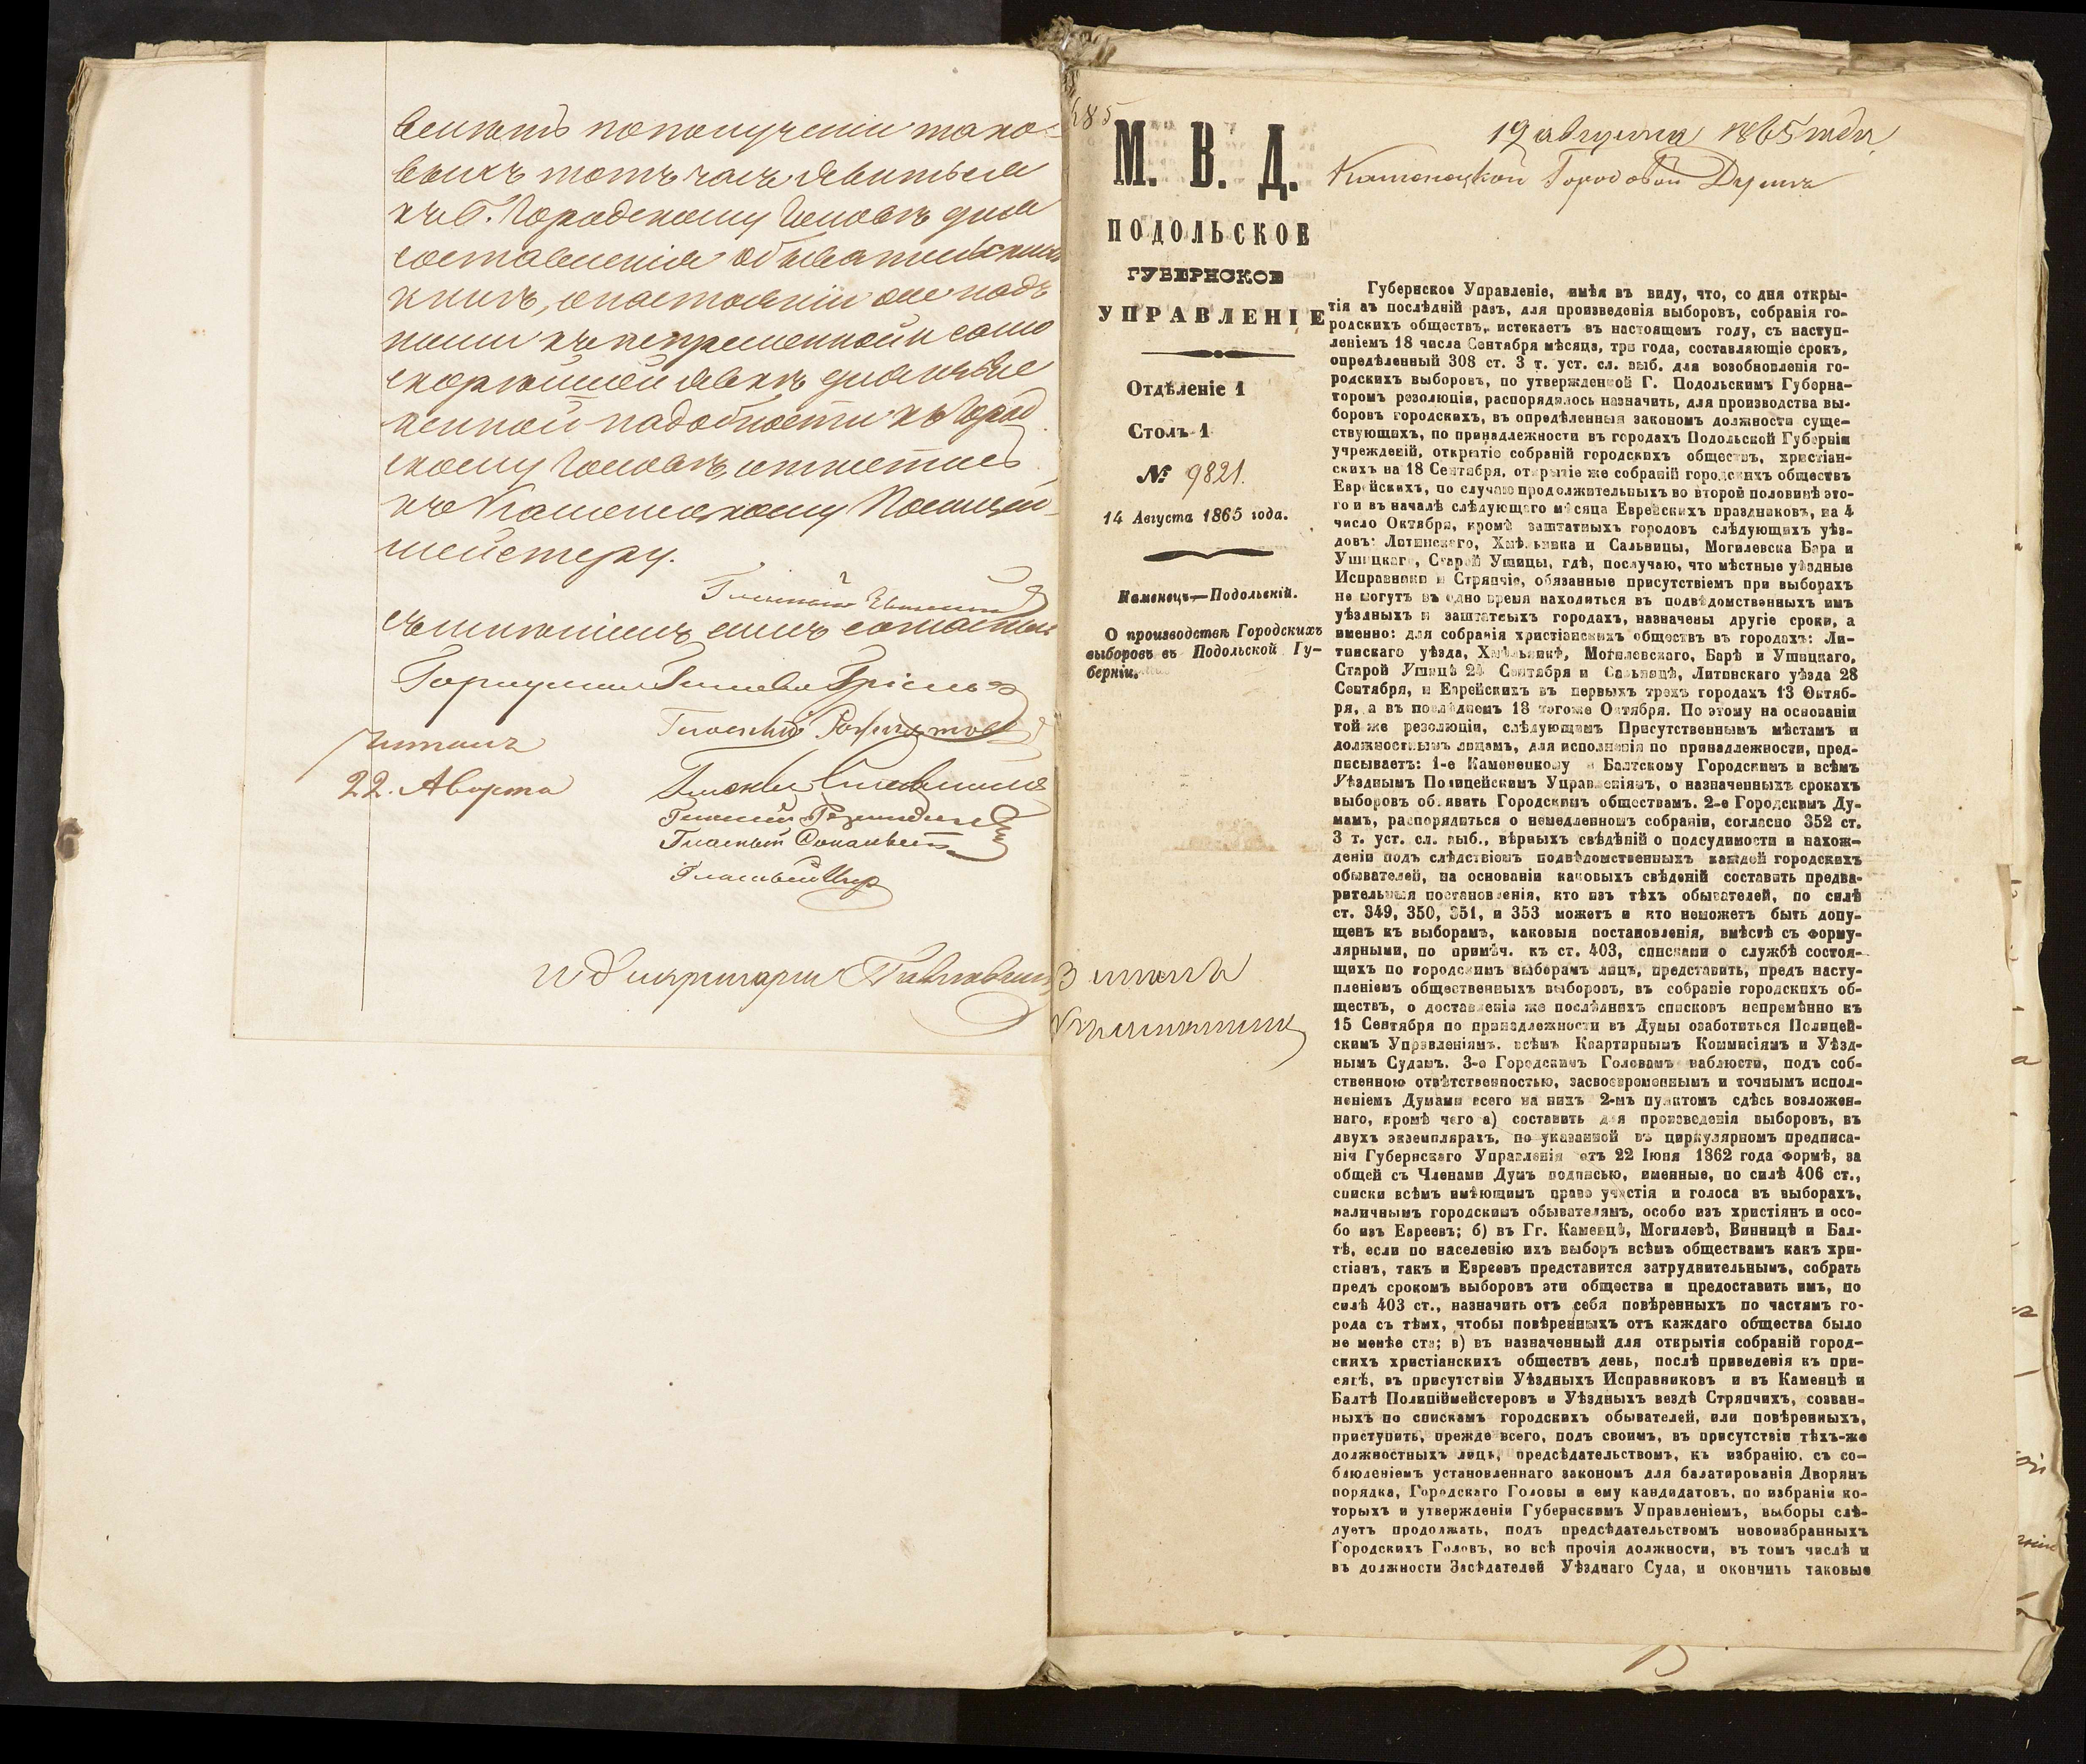 велитъ по получении тако-
выхъ тотъ часъ явиться
къ Г. Городскому Головѣ для
составленія обывательскихъ
книгъ, о настояніи же подъ
къ непременной и само
скорѣйшей явкѣ для
надобности къ Город
скому Головѣ, отнестись
къ Каменецкому Полицей-
мейстеру.
Гласный
Гласный
Читалъ
22. Августа
Гласный
Гласный
Гласный
485
М. В. Д.
ПОДОЛЬСКОЕ
ГУБЕРНСКОЕ
УПРАВЛЕНІЕ
Отдѣленіе 1
Столъ 1
№ 9821.
14 Августа 1865 года.
Каменецъ—Подольскій.
О производствѣ Городскихъ
выборовъ въ Подольской Гу-
берніи.
19 августа 1865 года
Каменецкой Городовой Думѣ
Губернское Управленіе, имѣя въ виду, что, со дня откры-
тія въ послѣдній разъ, для произведенія выборовъ, собранія го-
родскихъ обществъ, истекаетъ въ настоящемъ году, съ наступ-
леніемъ 18 числа Сентября мѣсяца, три года, составляющіе срокъ,
опредѣленный 308 ст. 3 т. уст. сл. выб. для возобновленія го-
родскихъ выборовъ, по утвержденной Г. Подольскимъ Губерна-
торомъ резолюціи, распорядилось назначить, для производства вы-
боровъ городскихъ, въ опредѣленныя закономъ должности суще-
ствующихъ, по принадлежности въ городахъ Подольской Губерніи
учрежденій, открытіе собраній городскихъ обществъ, христіан-
скихъ на 18 Сентября, открытіе же собраній городскихъ обществъ
Еврейскихъ, по случаю продолжительныхъ во второй половинѣ это-
го и въ началѣ слѣдующаго мѣсяца Еврейскихъ праздниковъ, на 4
число Октября, кромѣ заштатныхъ городовъ слѣдующихъ уѣз-
довъ: Литинскаго, Хмѣльника и Сальницы, Могилевска Бара и
Ушицкаго, Старой Ушицы, гдѣ, послучаю, что мѣстные уѣздные
Исправники и Стряпчіе, обязанные присутствіемъ при выборахъ
не могутъ въ одно время находиться въ подвѣдомственныхъ имъ
уѣздныхъ и заштатныхъ городахъ, назначены другіе сроки, а
именно: для собранія христіанскихъ обществъ въ городахъ: Ли-
тинскаго уѣзда, Хмѣльникѣ, Могилевскаго, Барѣ и Ушицкаго,
Старой Ушицѣ 24 Сентября и Сальницѣ, Литинскаго уѣзда 28
Сентября, и Еврейскихъ въ первыхъ трехъ городахъ 13 Октяб-
ря, а въ послѣднемъ 18 тогоже Октября. По этому на основаніи
той же резолюціи, слѣдующимъ Присутственнымъ мѣстамъ и
должностнымъ лицамъ, для исполненія по принадлежности, пред-
писываетъ: 1-е Каменецкому и Балтскому Городскимъ и всѣмъ
Уѣзднымъ Полицейскимъ Управленіямъ, о назначенныхъ срокахъ
выборовъ объявить Городскимъ обществамъ. 2-е Городскимъ Ду-
мамъ, распорядиться о немедленномъ собраніи, согласно 352 ст.
3 т. уст. сл. выб., вѣрныхъ свѣдѣній о подсудимости и нахож-
деніи подъ слѣдствіемъ подвѣдомственныхъ каждой городскихъ
обывателей, на основаніи каковыхъ свѣденій составить предва-
рительныя постановленія, кто изъ тѣхъ обывателей, по силѣ
ст. 349, 350, 351, и 353 можетъ и кто неможетъ быть допу-
щенъ къ выборамъ, каковыя постановленія, вмѣстѣ съ форму-
лярными, по примѣч. къ ст. 403, списками о службѣ состоя-
щихъ по городскимъ выборамъ лицъ, представить, предъ насту-
пленіемъ общественныхъ выборовъ, въ собраніе городскихъ об-
ществъ, о доставленіи же послѣднихъ списковъ непремѣнно къ
15 Сентября по принадлежности въ Думы озаботиться Полицей-
скимъ Управленіямъ. всѣмъ Квартирнымъ Коммисіямъ и Уѣзд-
нымъ Судамъ. 3-е Городскимъ Головамъ наблюсти, подъ соб-
ственною отвѣтственностью, засвоевременнымъ и точнымъ испол-
неніемъ Думами всего на нихъ 2-мъ пунктомъ сдѣсь возложен-
наго, кромѣ чего а) составить для произведенія выборовъ, въ
двухъ экземплярахъ, по указанной въ циркулярномъ предписа-
ніи Губернскаго Управленія отъ 22 Іюня 1862 года формѣ, за
общей съ Членами Думъ подписью, именные, по силѣ 406 ст.,
списки всѣмъ имѣющимъ право участія и голоса въ выборахъ,
наличнымъ городскимъ обывателямъ, особо изъ христіянъ и осо-
бо изъ Евреевъ; б) въ Гг. Каменцѣ, Могилевѣ, Винницѣ и Бал-
тѣ, если по населенію ихъ выборъ всѣмъ обществамъ какъ хри-
стіанъ, такъ и Евреевъ представится затруднительнымъ, собрать
предъ срокомъ выборовъ эти общества и предоставить имъ, по
силѣ 403 ст., назначить отъ себя повѣренныхъ по частямъ го-
рода съ тѣмъ, чтобы повѣренныхъ отъ каждаго общества было
не менѣе ста; в) въ назначенный для открытія собраній город-
скихъ христіанскихъ обществъ день, послѣ приведенія къ при-
сягѣ, въ присутствіи Уѣздныхъ Исправниковъ и въ Каменцѣ и
Балтѣ Полиціймейстеровъ и Уѣздныхъ вездѣ Стряпчихъ, созван-
ныхъ по спискамъ городскихъ обывателей, или повѣренныхъ,
приступить, прежде всего, подъ своимъ, въ присутствіи тѣхъ-же
должностныхъ лицъ, предсѣдательствомъ, къ избранію, съ со-
блюденіемъ установленнаго закономъ для балатированія Дворянъ
порядка, Городскаго Головы и ему кандидатовъ, по избраніи ко-
торыхъ и утвержденіи Губернскимъ Управленіемъ, выборы слѣ-
дуетъ продолжать, подъ предсѣдательствомъ новоизбранныхъ
Городскихъ Головъ, во всѣ прочія должности, въ томъ числѣ и
въ должности Засѣдателей Уѣзднаго Суда, и окончить таковые